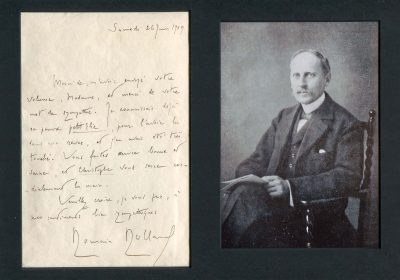 Samedi 26 juin 1909
Merci de m'avoir envoyé votre
volume, Madame, et merci de votre
mot de sympathie. Je connaissais déjà
pour l'avoir lu
et j'en avais été très
touché. Vous faites œuvre bonne et
saine et Christophe vous serre cor-
dialement la main.
Veuillez croire, je vous prie, à
mes sentiments bien sympathiques
Romain Rolland